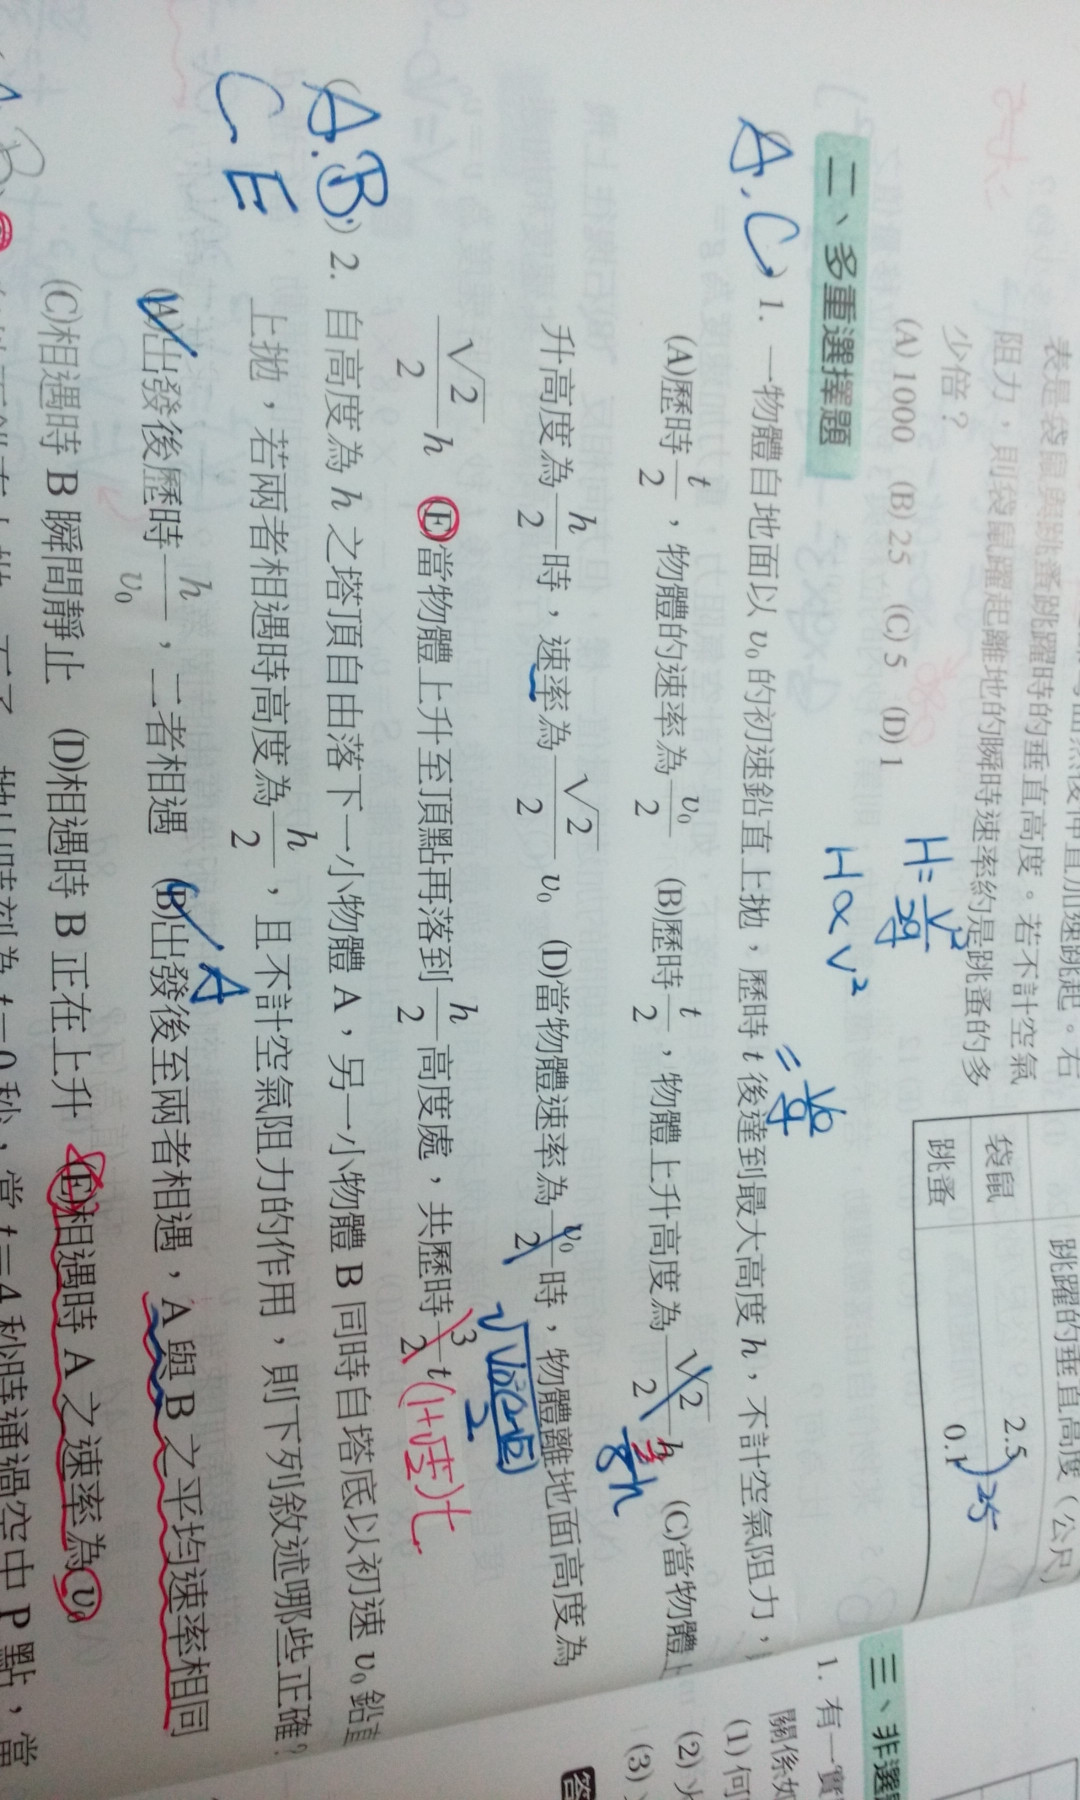 表是袋鼠與跳蚤跳躍時的垂直高度。若不計空氣
阻力,則袋鼠躍起離地的瞬時速率約是跳蚤的多
少倍?
(A)1000 (B)25 (C)5 (D)1
跳躍的垂直高度(公尺)
袋鼠 2.5
跳蚤 0.1
25
H=V²/2g
H∝V²
二、多重選擇題
A.C 1. 一物體自地面以 v₀ 的初速鉛直上拋,歷時 t 後達到最大高度 h,不計空氣阻力,
= V₀/g
(A)歷時 t/2,物體的速率為 v₀/2 (B)歷時 t/2,物體上升高度為 √2/2 h (C)當物體上
升高度為 h/2 時,速率為 √2/2 v₀ (D)當物體速率為 v₀/2 時,物體離地面高度為
√2/2 h (E)當物體上升至頂點再落到 h/2 高度處,共歷時 3/2 t (1+√2/2)t
A.B C.E ) 2. 自高度為 h 之塔頂自由落下一小物體 A,另一小物體 B 同時自塔底以初速 v₀ 鉛直
上拋,若兩者相遇時高度為 h/2,且不計空氣阻力的作用,則下列敘述哪些正確?
(A)出發後歷時 h/v₀,二者相遇 (B)出發後至兩者相遇,A 與 B 之平均速率相同
(C)相遇時 B 瞬間靜止 (D)相遇時 B 正在上升 (E)相遇時 A 之速率為 v₀
三、非選
1. 有一實
關係如
(1)何
(2)
(3)
答